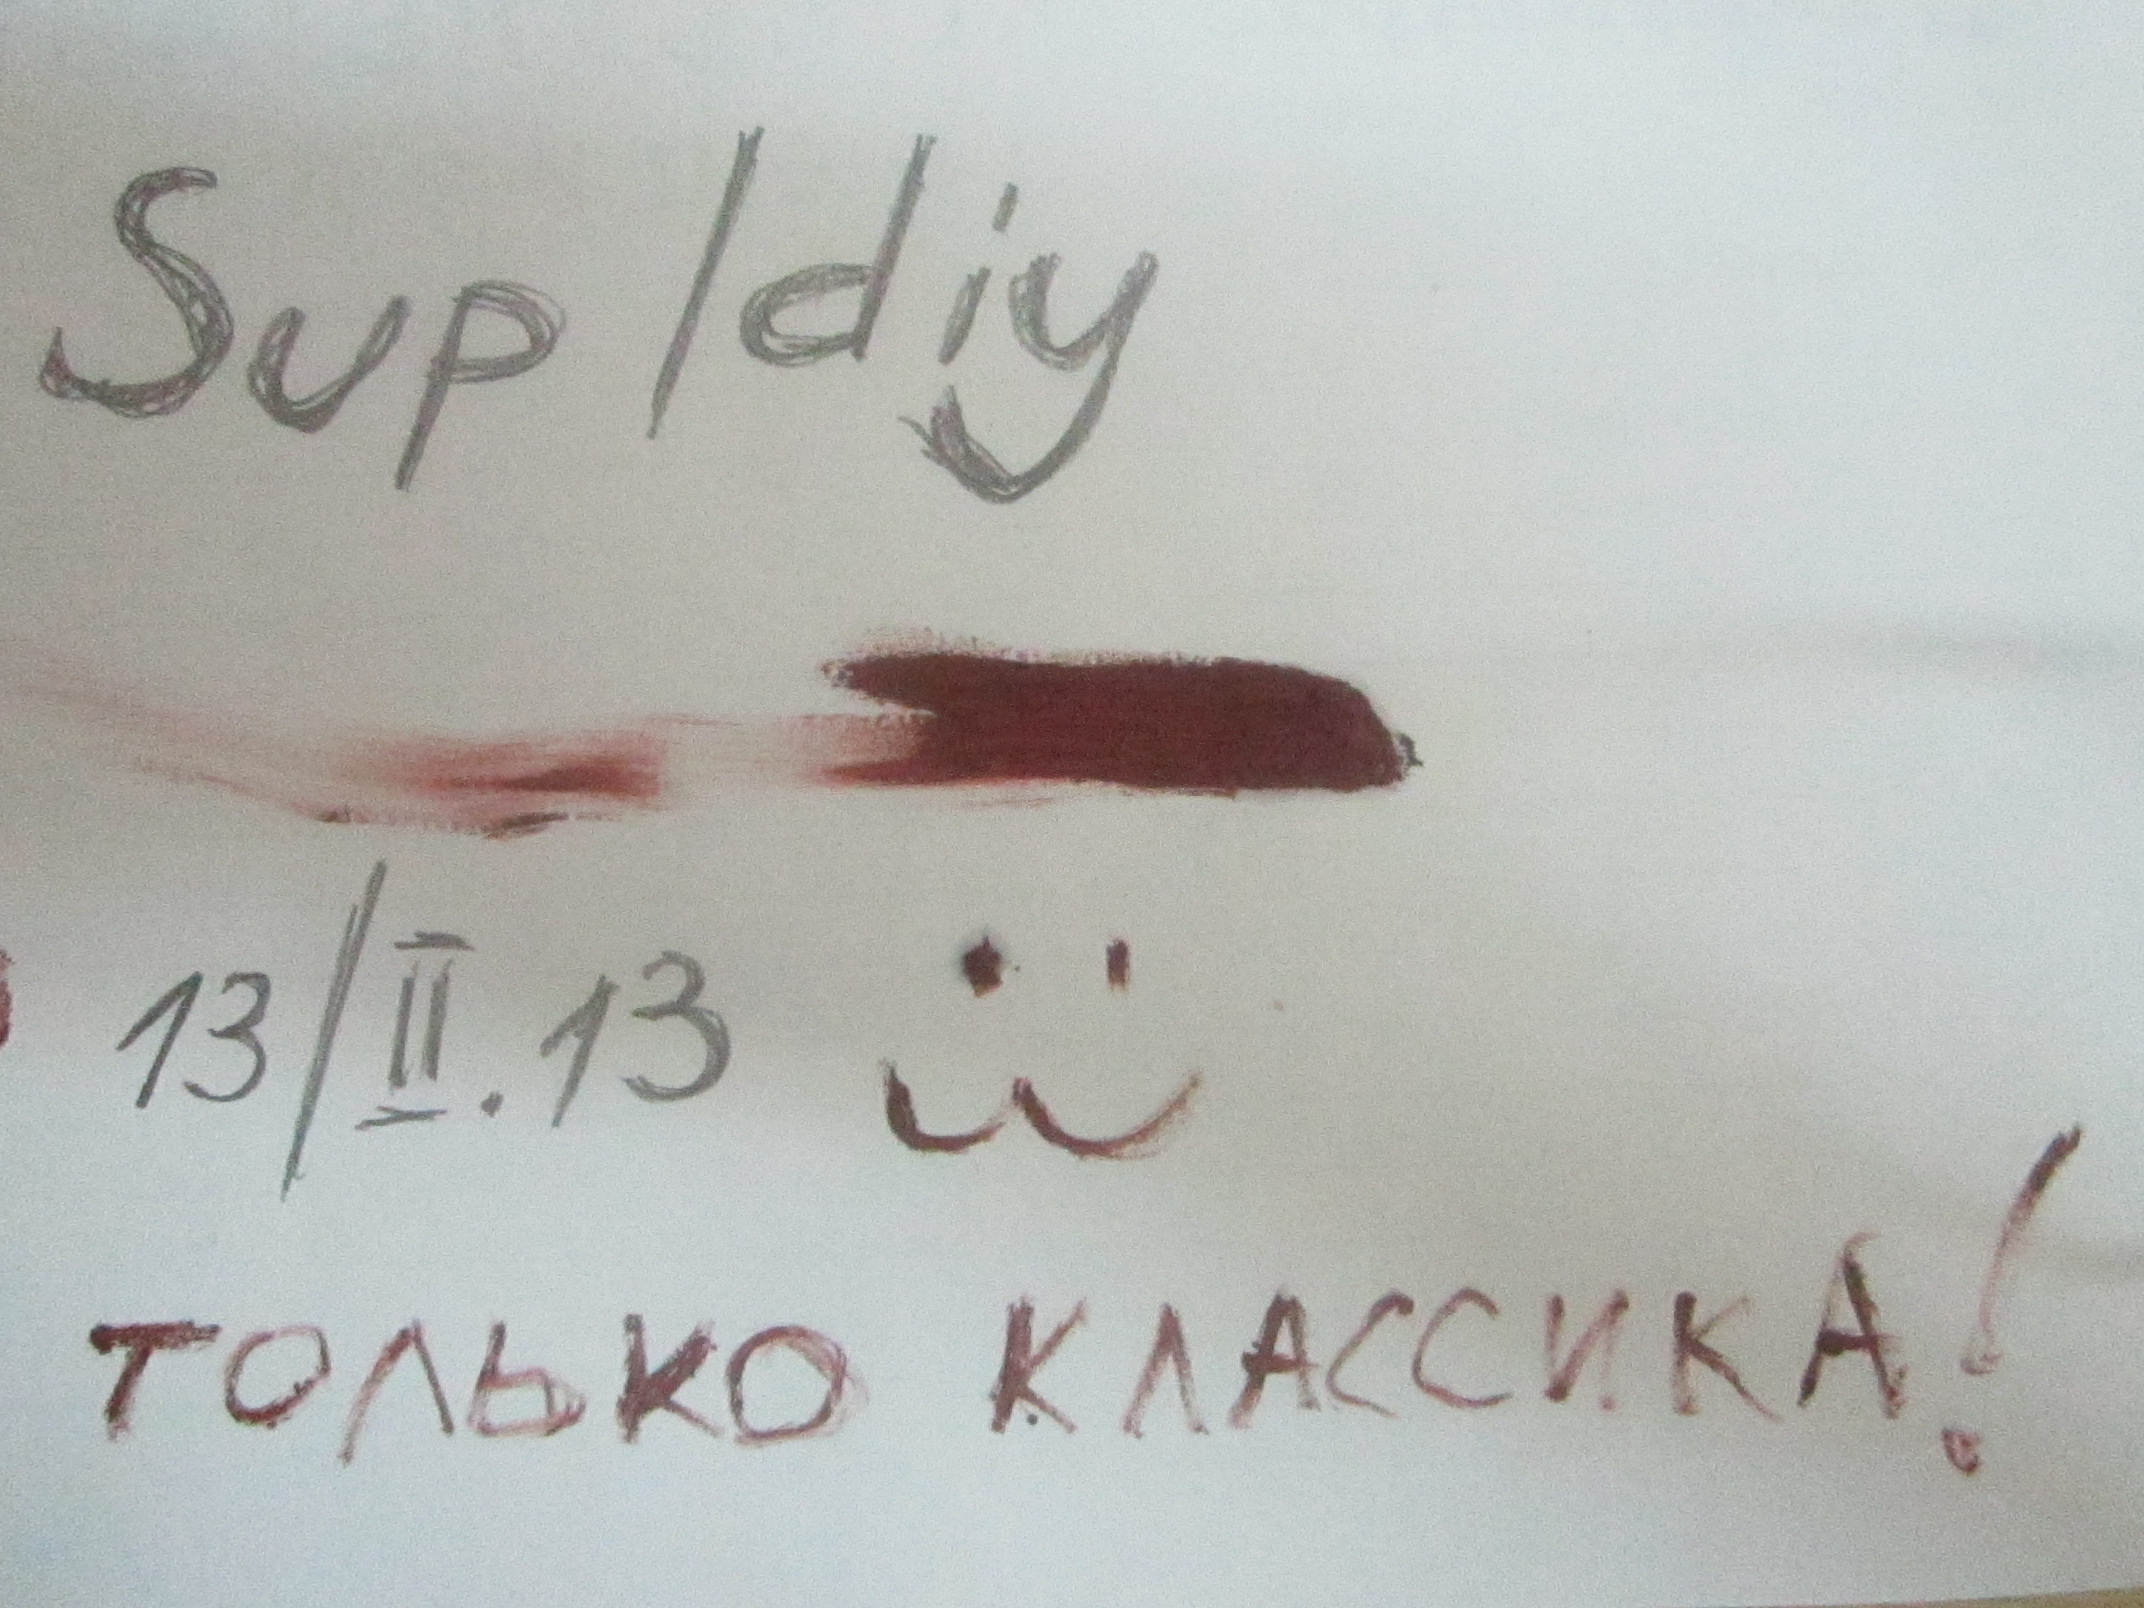 Sup /diy
13/II.13
ТОЛЬКО КЛАССИКА!